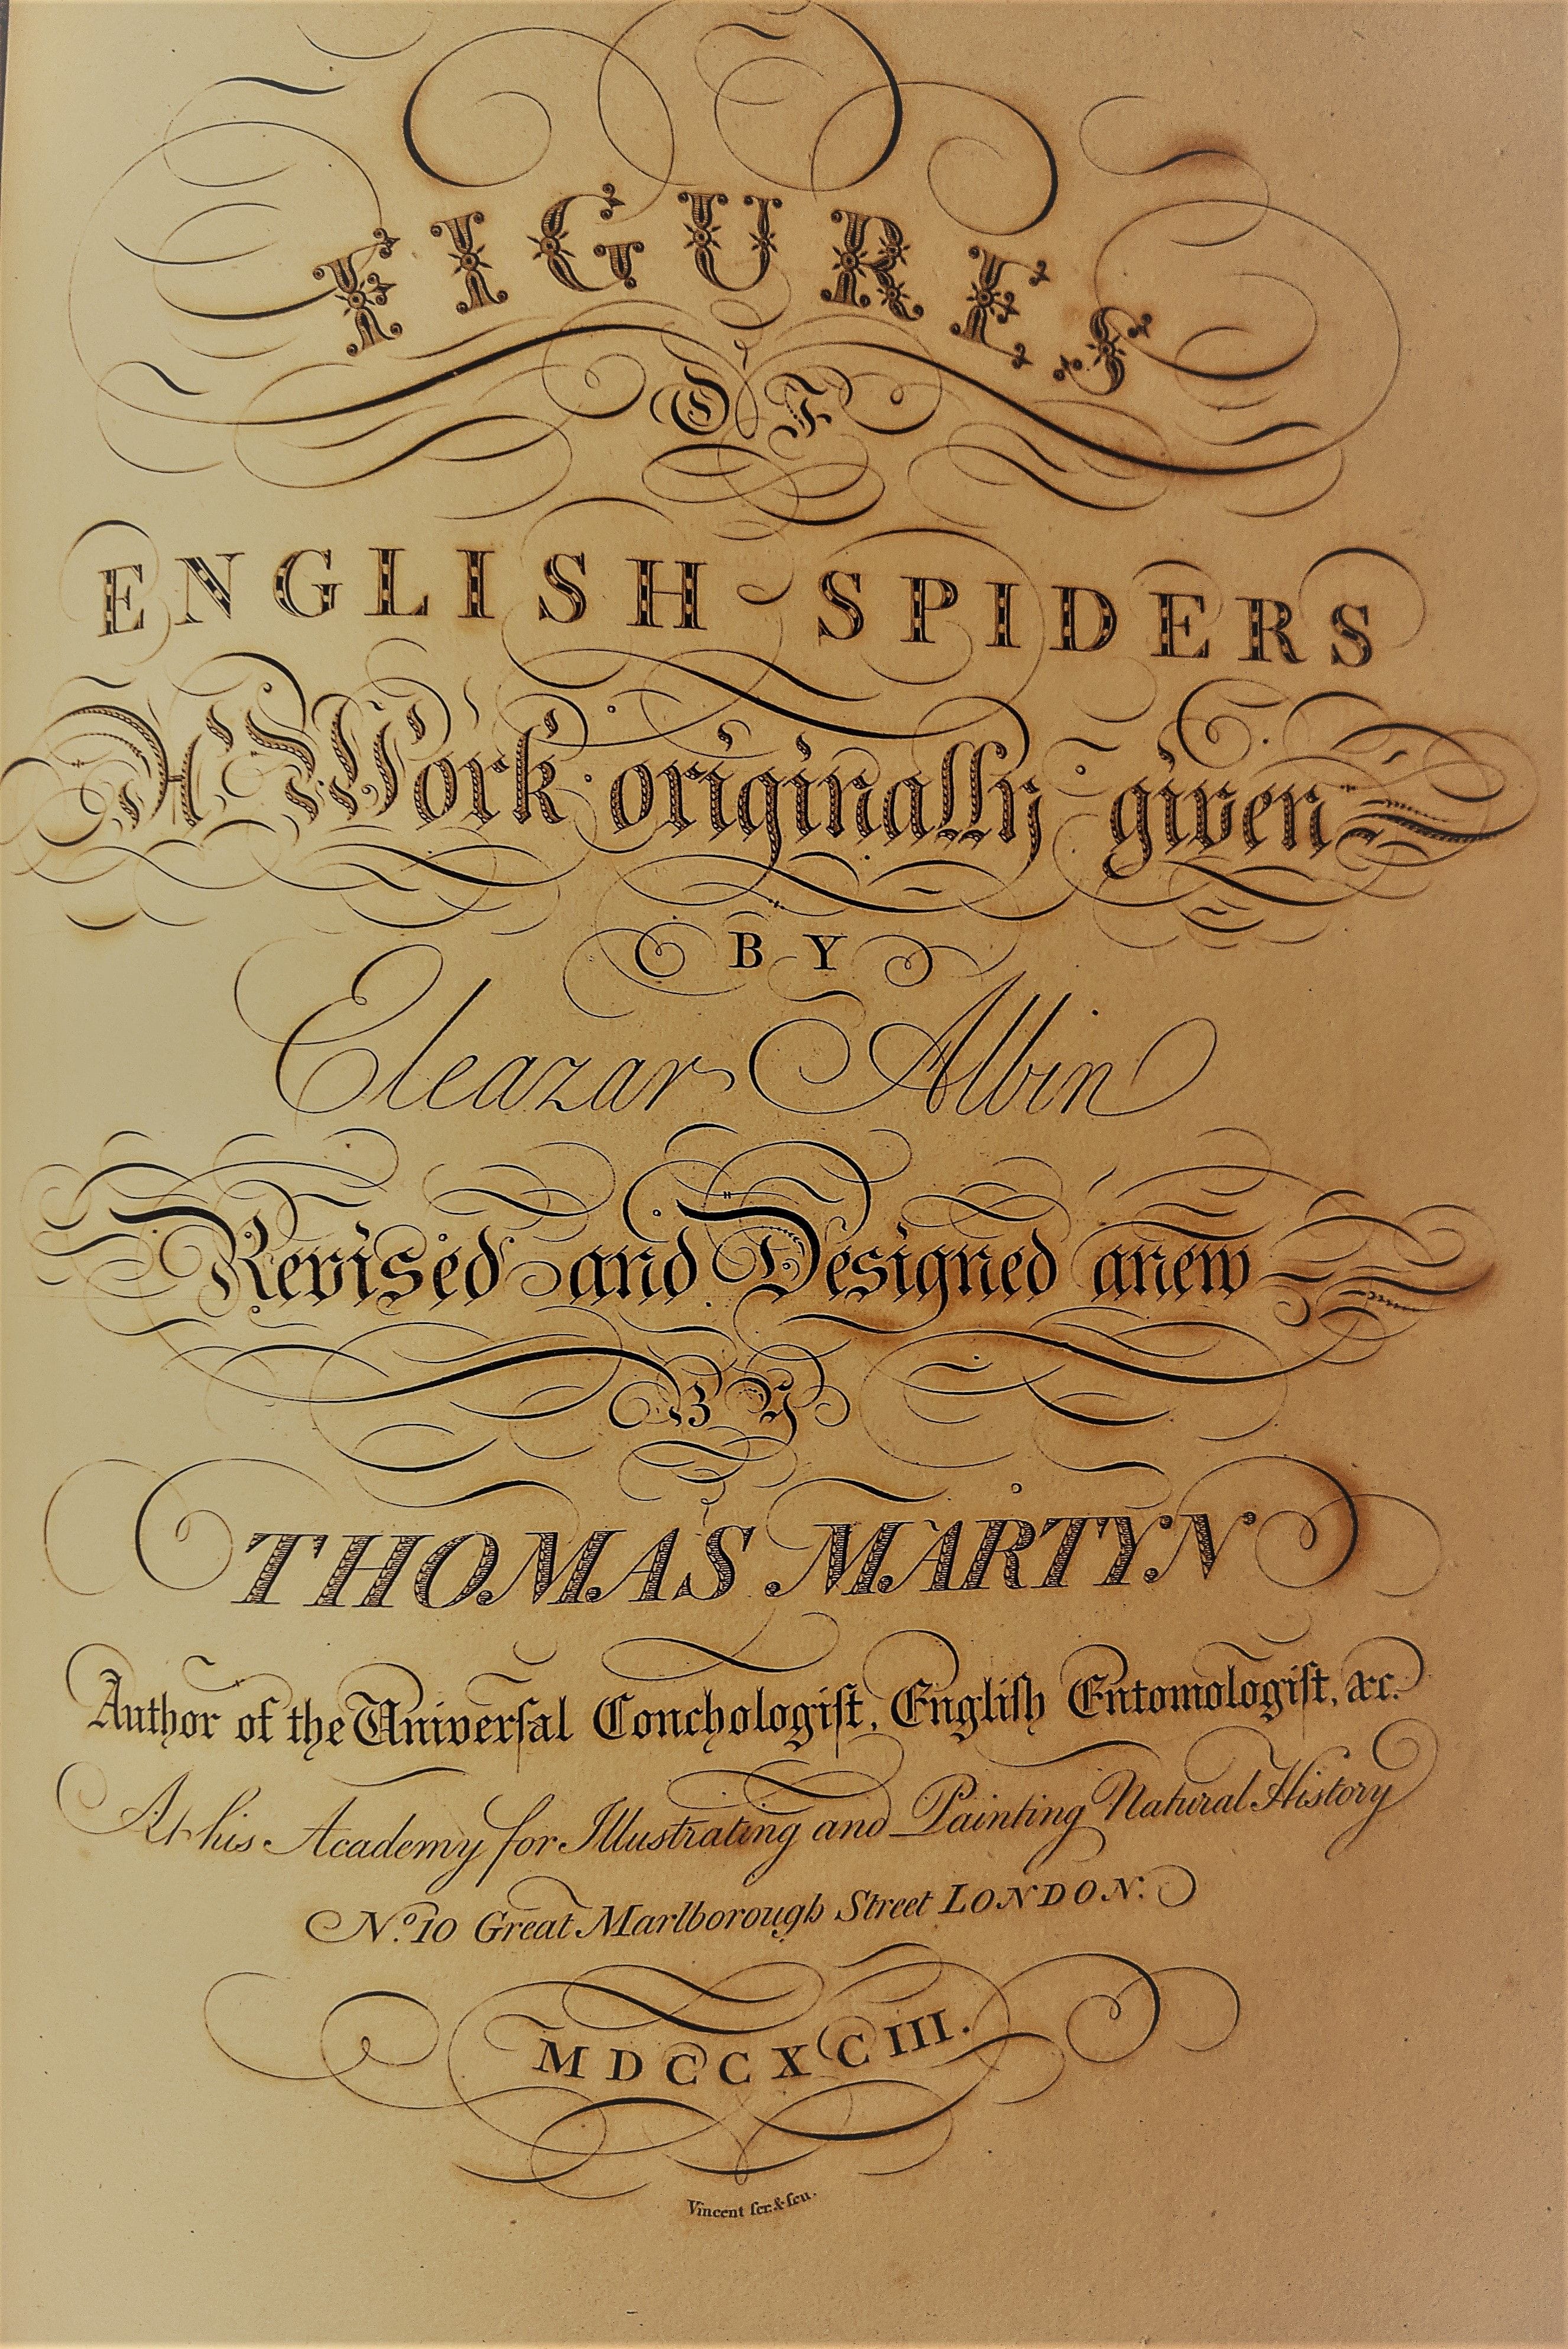 FIGURES
OF
ENGLISH SPIDERS
A Work originally given
BY
Eleazar Albin
Revised and Designed anew
BY
THOMAS MARTYN
Author of the Univerſal Conchologiſt, Engliſh Entomologiſt, &c.
At his Academy for Illustrating and Painting Natural History
No. 10 Great Marlborough Street LONDON.
MDCCXCIII.
Vincent ſcr. & ſcu.